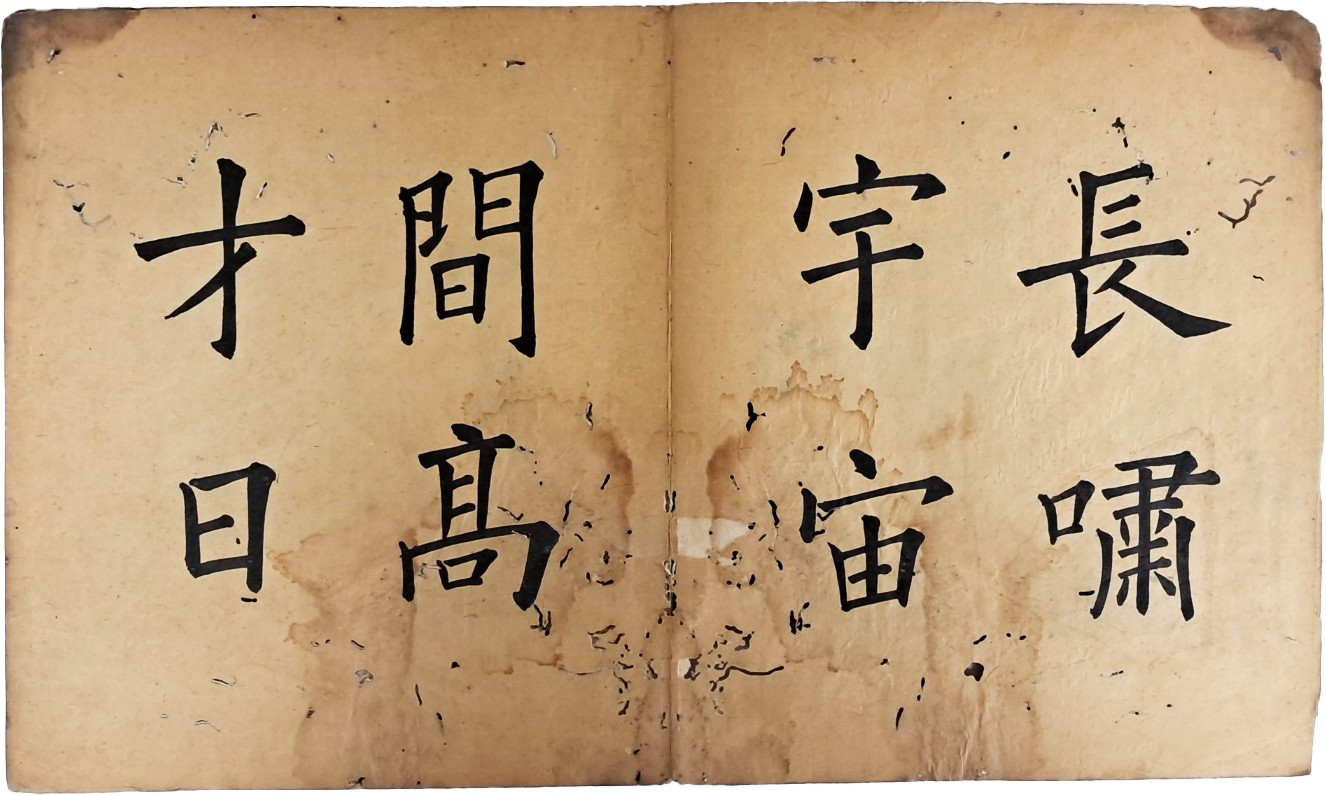 長嘯
宇宙
間髙
才日